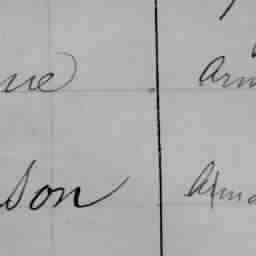 ne Arm
son Arma